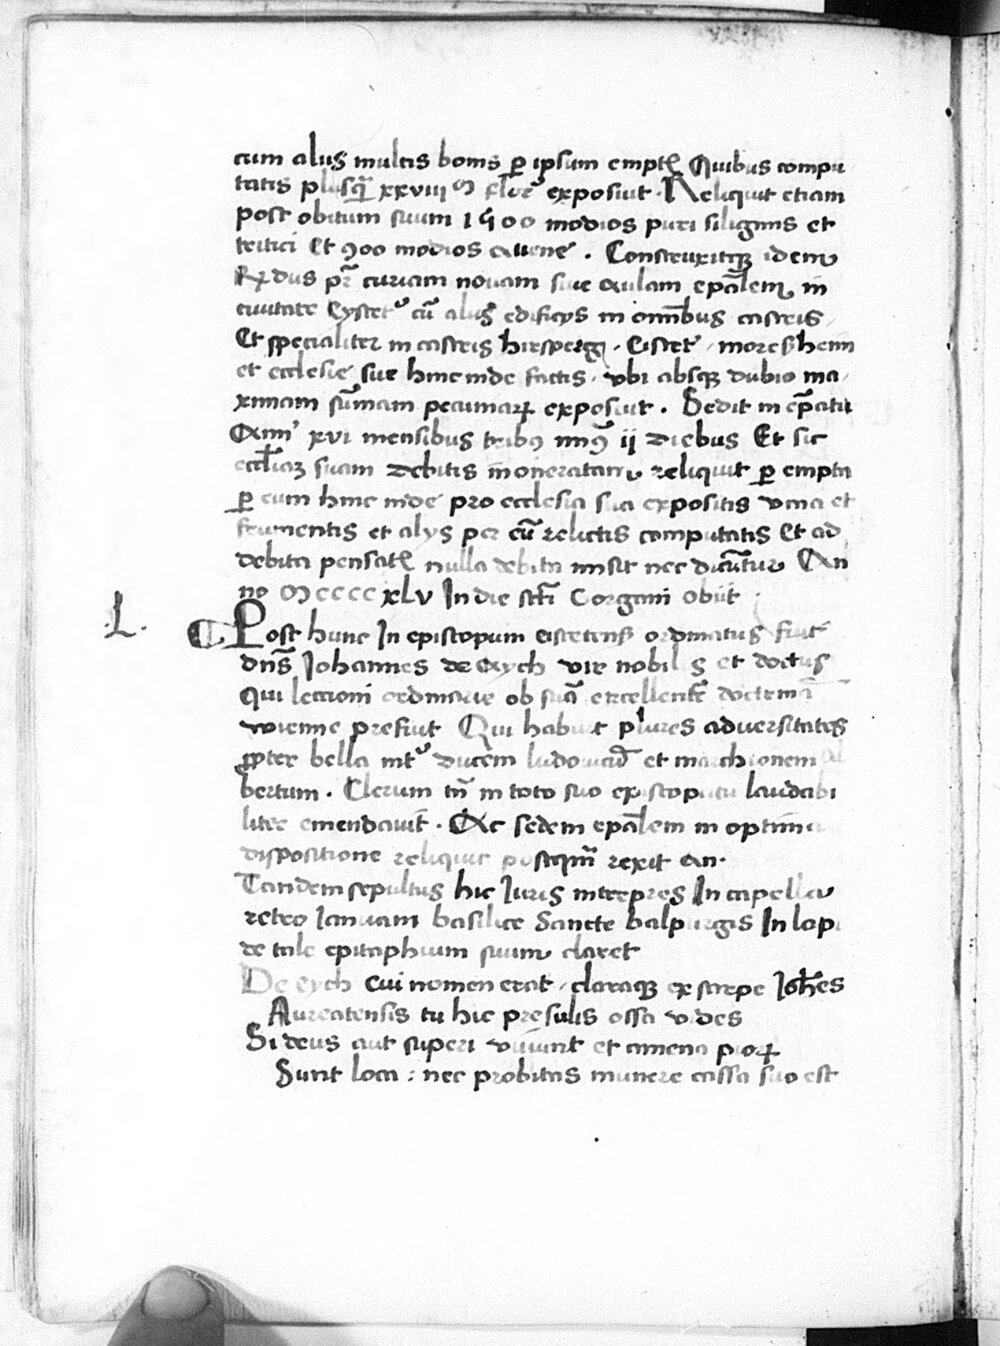 cum aliis multis bonis ꝑ ipsum empt̄ Quibus compu
tatis plusqͣ xxviii ᴍ flor̄ exposuit · Reliquit etiam
post obitum suum 1500 modios puri siliginis et
tritici Et 900 modios auene · Construxitqꝫ idem
R̄dus pr̄ curiam nouam siue aulam ep̄alem in
ciuitate Eystet̄ cū aliis edificijs in om̄ibus castris
Et specialiter in castris hirsperg · Eistet · moresheim
et ecclesie sue hincinde factis · vbi absqꝫ dubio ma
ximam sūmam pecuniaꝝ exposuit · Sedit in ep̄atu
Ann' xvi mensibus tribꝰ minꝰ ij diebus Et sic
eccl̄iaꝫ suam debitis inoneratam reliquit ꝑ empta
ꝑ eum hinc inde pro ecclesia sua expositis vina et
frumentis et alys per eū relictis computatis Et ad
debita pensat̄ nulla debita misit nec dicūtur An
no Mccccxlv In die sct̄i Gorgoni obijt ·
.L. ⸿ Post hunc In episcopum eistetens̄ ordinatus fuit
dns̄ Johannes de Aych vir nobilis et doctus
Qui lectioni ordinarie ob suā excellentē doctrinā
wienne prefuit Qui habuit plures aduersitates
ꝓpter bella int' ducem ludouicū et marchionem al
bertum · Clerum tn̄ in toto suo episcopatu laudabi
liter emendauit · Ac sedem ep̄alem in optima
dispositione reliquit postqm̄ rexit an·
Tandem sepultus hic Iuris interpres In capella
retro Ianuam basilice Sancte balpurgis In lapi
de tale epitaphium suum claret
De eych cui nomen erat · claraqꝫ ex stirpe Joh̄es
Aureatensis tu hic presulis ossa vides
Si deus aut superi viuunt et amena pioꝝ
Sunt loca : nec probitas munere cassa suo est